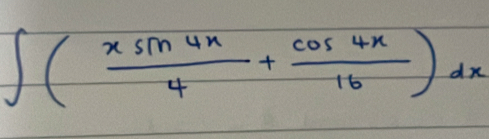 ∫ ( x sin 4x / 4 + cos 4x / 16 ) dx